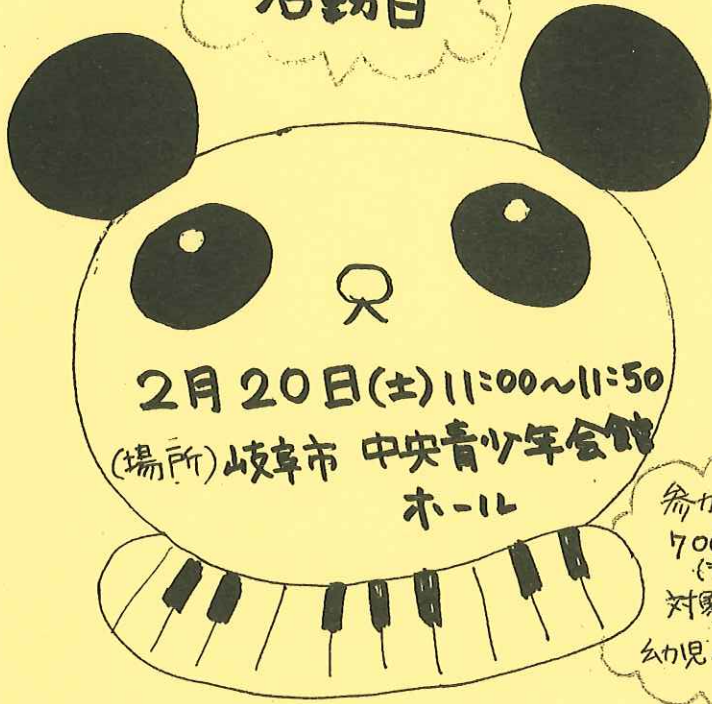 活動日
2月20日(土)11:00~11:50
(場所)岐阜市 中央青少年会館
ホール
700
幼児